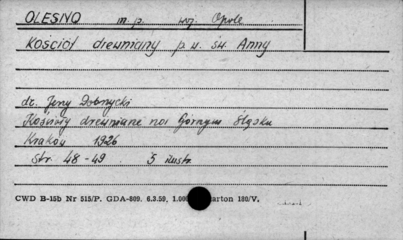 OLESNO m. p. woj. Opole
Kościół drewniany p. w. św. Anny
dr. Jerzy Dobrzycki
Kościoły drewniane na Górnym Śląsku
Kraków 1926
Str. 48-49 5 ilustr.
CWD B-15b Nr 515/P. GDA-809. 6.3.59. 1.000 karton 180/V.